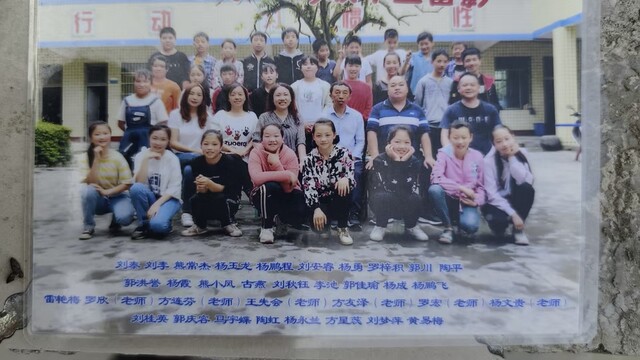 行动
性
刘奉 刘季 熊常杰 杨玉龙 杨鹏程 刘安睿 杨勇 罗梓积 郭川 陶平
郭洪誉 杨霞 熊小凤 古燕 刘秋钰 李池 郭佳瑜 杨成 杨鹏飞
雷艳梅 罗欣（老师）方连芬（老师）王失会（老师）方友泽（老师）罗宏（老师）杨文贵（老师）
刘桂英 郭庆容 马宇蝶 陶虹 杨永兰 方星蕊 刘梦萍 黄易梅